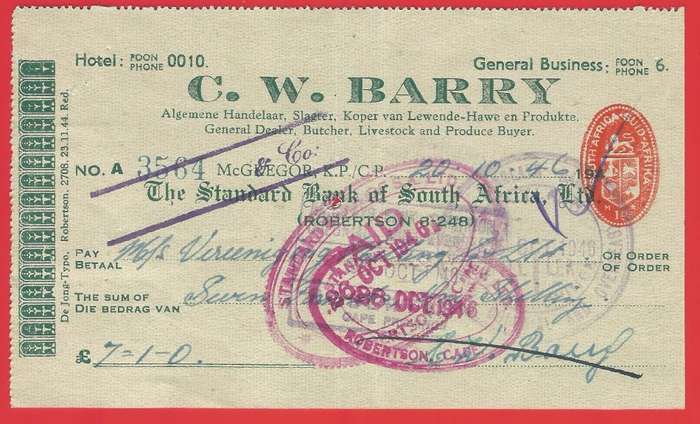 Hotel: FOON PHONE 0010. General Business: FOON PHONE 6.
C. W. BARRY
Algemene Handelaar, Slagter, Koper van Lewende-Hawe en Produkte.
General Dealer, Butcher, Livestock and Produce Buyer.
NO. A 3564 McGREGOR, K.P./C.P. 20·10·46 194
& Co:
The Standard Bank of South Africa, Ltd.
(ROBERTSON 8-248)
PAY
BETAAL
M/s OR ORDER
OF ORDER
THE SUM OF
DIE BEDRAG VAN
Seven Shilling
£ 7-1-0.
Barry
De Jong-Typo, Robertson. 2708. 23.11.44. Red.
SOUTH AFRICA SUID-AFRIKA
PAID
OCT 1946
ROBERTSON, CAPE